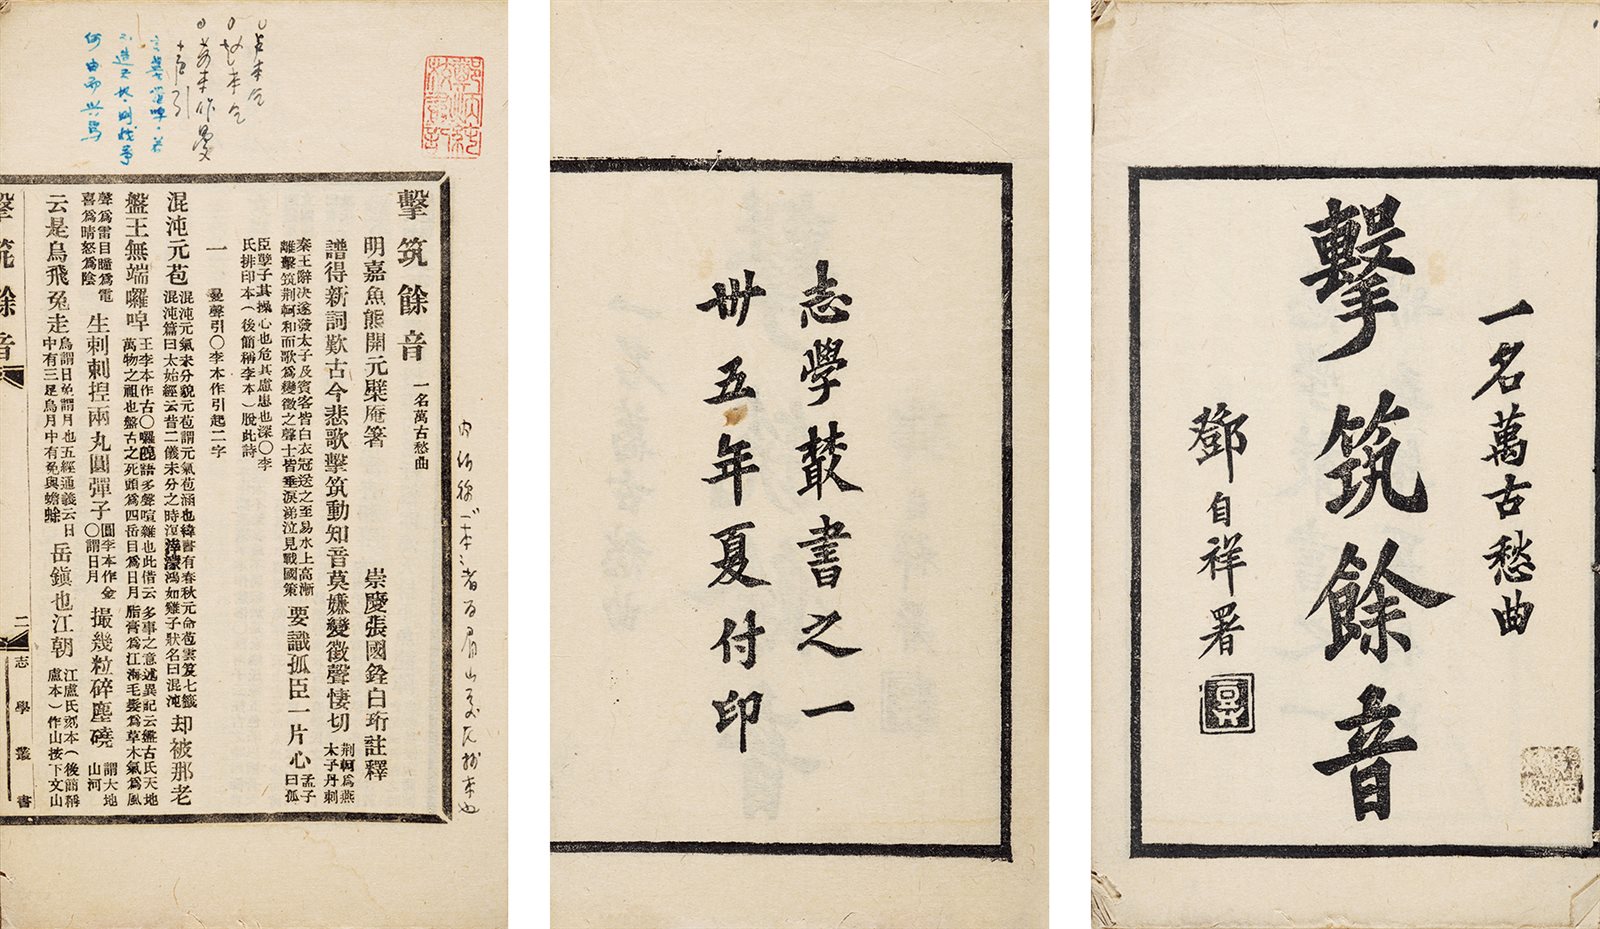 一名萬古愁曲
擊筑餘音
鄧自祥署
志學叢書之一
卅五年夏付印
擊筑餘音 一名萬古愁曲
明嘉魚熊開元檗庵箸 崇慶張國銓白珩註釋
譜得新詞歎古今悲歌擊筑動知音莫嫌變徵聲悽切
荆軻爲燕
太子丹刺
秦王辭決遂發太子及賓客皆白衣冠送之至易水上高漸
離擊筑荆軻和而歌爲變徵之聲士皆垂淚涕泣見戰國策
要識孤臣一片心
孟子
曰孤
臣孽子其操心也危其慮患也深〇李
氏排印本（後簡稱李本）脫此詩
一 曼聲引〇李本作引起二字
混沌元苞
混沌元氣未分貌元苞謂元氣苞涵也緯書有春秋元命苞雲笈七籤
混沌篇曰太始經云昔二儀未分之時溟涬濛鴻如雞子狀名曰混沌
却被那老
盤王無端囉唣
王李本作古〇囉唣語多聲喧雜也此借云多事之意述異記云盤古氏天地
萬物之祖也盤古之死頭爲四岳目爲日月脂膏爲江海毛髮爲草木氣爲風
聲爲雷目瞳爲電
喜爲晴怒爲陰
生剌剌揑兩丸圓彈子
圓李本作金
〇謂日月
撮幾粒碎塵磽
謂大地
山河
云是烏飛兔走
烏謂日兔謂月也五經通義云日
中有三足烏月中有兔與蟾蜍
岳鎭也江朝
江盧氏刻本（後簡稱
盧本）作山按下文山
擊筑餘音
二
志學叢書